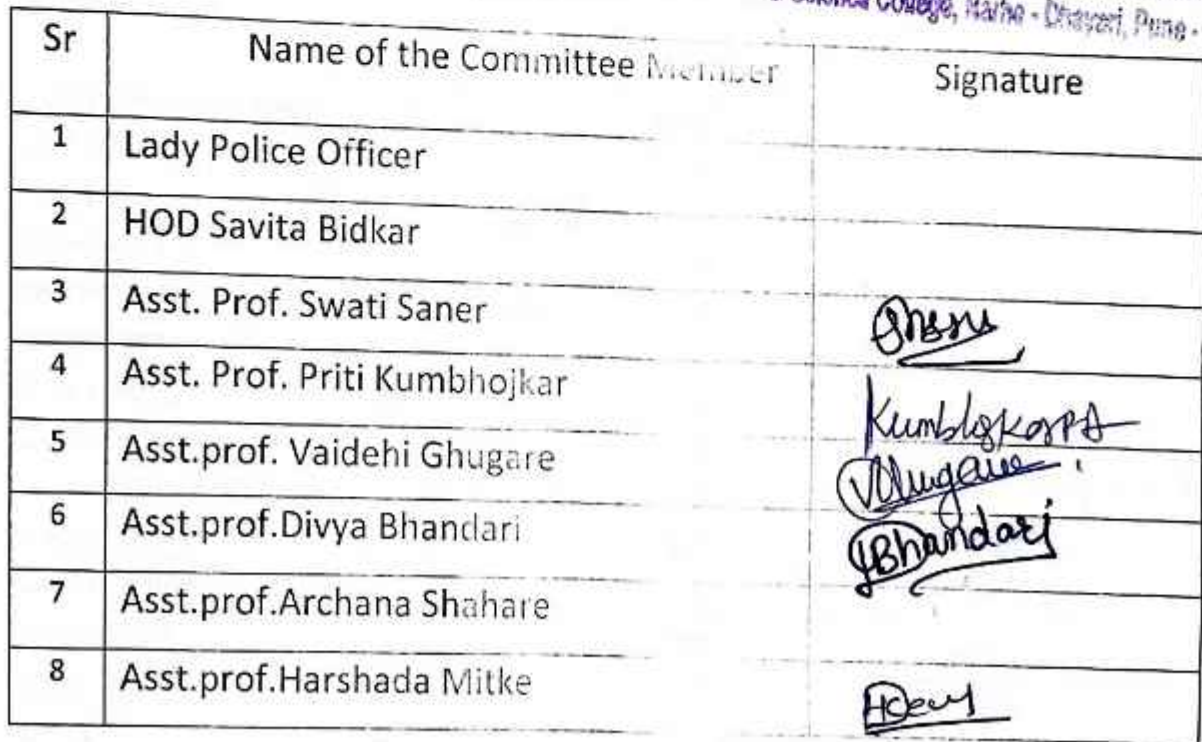 Science College, Narhe - Dhayari, Pune -
Sr Name of the Committee Member Signature
1 Lady Police Officer
2 HOD Savita Bidkar
3 Asst. Prof. Swati Saner
4 Asst. Prof. Priti Kumbhojkar
5 Asst.prof. Vaidehi Ghugare
6 Asst.prof.Divya Bhandari Bhandari
7 Asst.prof.Archana Shahare
8 Asst.prof.Harshada Mitke